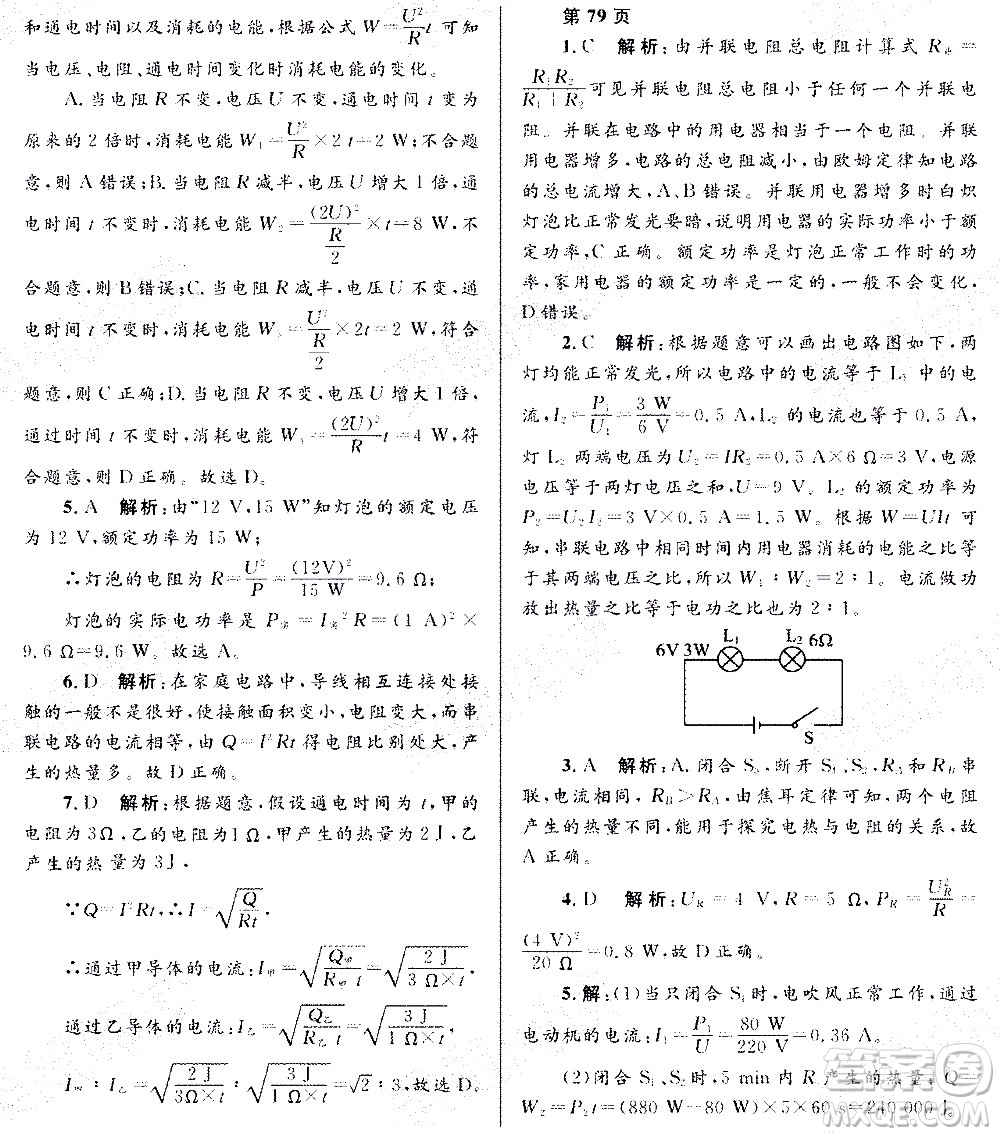 和通电时间以及消耗的电能，根据公式 W=U²/R t
当电压、电阻、通电时间变化时消耗电能的变化。
A. 当电阻 R 不变，电压 U 不变，通电时间 t 变为
原来的 2 倍时，消耗电能 W₁=U²/R×2 t=2 W；不合题
意，则 A 错误；B. 当电阻 R 减半，电压 U 增大 1 倍，通
电时间 t 不变时，消耗电能 W₂=(2U)²/(R/2)×t=8 W，不
合题意，则 B 错误；C. 当电阻 R 减半，电压 U 不变，通
电时间 t 不变时，消耗电能 W₃=U²/(R/2)×t=2 W，符合
题意，则 C 正确；D. 当电阻 R 不变，电压 U 增大 1 倍，
通过时间 t 不变时，消耗电能 W₄=(2U)²/R×t=4 W，符
合题意，则 D 正确。故选 D。
5. A 解析：由“12 V，15 W”知灯泡的额定电压
为 12 V，额定功率为 15 W；
∴灯泡的电阻为 R=U²/P=(12V)²/15 W=9.6 Ω；
灯泡的实际电功率是 P实=I实²R=(1 A)²×
9.6 Ω=9.6 W。故选 A。
6. D 解析：在家庭电路中，导线相互连接处接
触的一般不是很好，使接触面积变小，电阻变大，而串
联电路的电流相等，由 Q=I²Rt 得电阻比别处大，产
生的热量多。故 D 正确。
7. D 解析：根据题意，假设通电时间为 t，甲的
电阻为 3Ω，乙的电阻为 1 Ω，甲产生的热量为 2 J，乙
产生的热量为 3J.
∵Q=I²Rt，∴I=√(Q/Rt).
∴通过甲导体的电流：I甲=√(Q甲/R甲t)=√(2 J/3 Ω×t)
通过乙导体的电流：I乙=√(Q乙/R乙t)=√(3 J/1 Ω×t)
I甲：I乙=√(2 J/3 Ω×t)：√(3 J/1 Ω×t)=2：3，故选 D。
第 79 页
1. C 解析：由并联电阻总电阻计算式 R并=
R₁R₂/(R₁+R₂)可见并联电阻总电阻小于任何一个并联电
阻。并联在电路中的用电器相当于一个电阻。并联
用电器增多，电路的总电阻减小，由欧姆定律知电路
的总电流增大，A、B 错误。并联用电器增多时白炽
灯泡比正常发光要暗，说明用电器的实际功率小于额
定功率，C 正确。额定功率是灯泡正常工作时的功
率，家用电器的额定功率是一定的，一般不会变化，
D 错误。
2. C 解析：根据题意可以画出电路图如下，两
灯均能正常发光，所以电路中的电流等于 L₁ 中的电
流，I₂=P₁/U₁=3 W/6 V=0.5 A，L₂ 的电流也等于 0.5 A，
灯 L₂ 两端电压为 U₂=IR₂=0.5 A×6 Ω=3 V，电源
电压等于两灯电压之和，即 U=9 V。L₂ 的电功率为
P₂=U₂I₂=3 V×0.5 A=1.5 W。根据 W=UIt 可
知，串联电路中相同时间内用电器消耗的电能之比等
于其两端电压之比，所以 W₁：W₂=2：1。电流做功
放出热量之比等于电功之比也为 2：1。
6V 3W L₁ L₂ 6Ω
S
3. A 解析：A. 闭合 S₃，断开 S₁、S₂，R_A 和 R_B 串
联，电流相同，R_B>R_A，由焦耳定律可知，两个电阻
产生的热量不同，能用于探究电热与电阻的关系，故
A 正确。
4. D 解析：U_R=4 V，R=5 Ω，P_R=U_R²/R=
(4 V)²/20 Ω=0.8 W，故 D 正确。
5. 解：(1)当只闭合 S₁ 时，电吹风正常工作，通过
电动机的电流：I₁=P₁/U=80 W/220 V≈0.36 A。
(2)闭合 S₁、S₂ 时，5 min 内 R 产生的热量，Q=
W₂=P₂t=(880 W−80 W)×5×60 s=240 000 J。